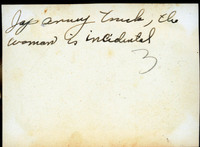 Jap army truck, the
woman is incidental
3